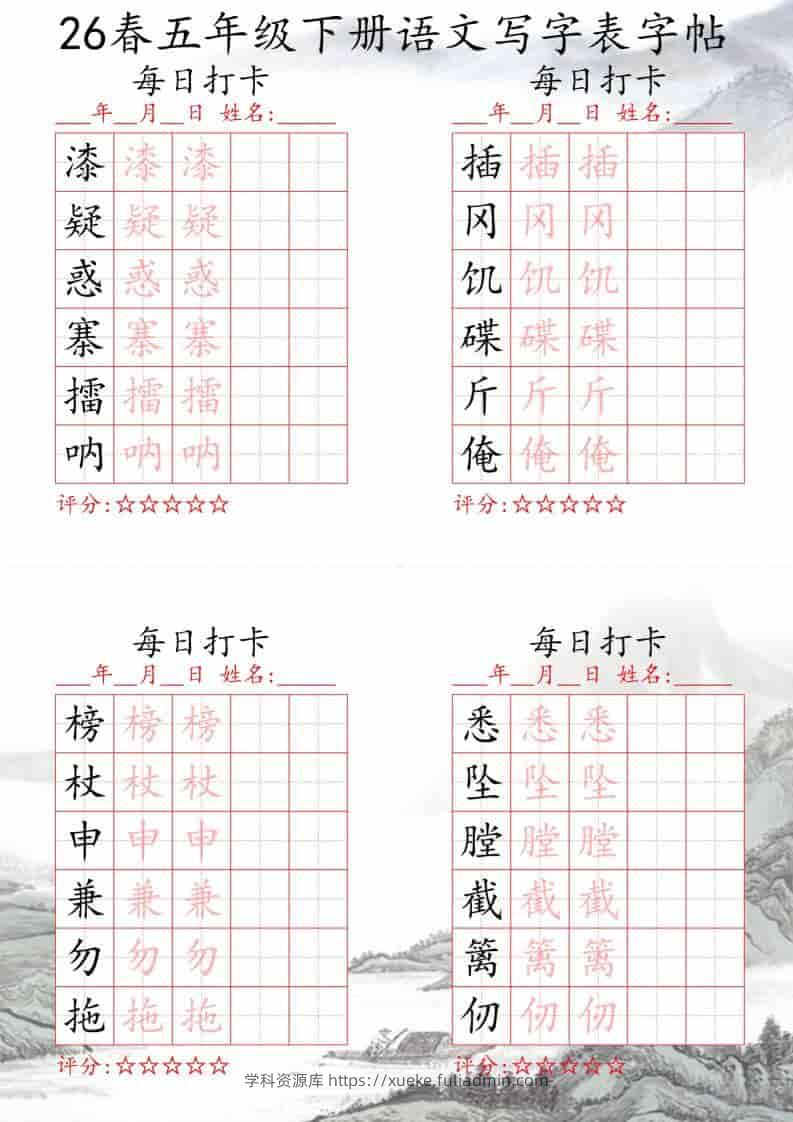 26春五年级下册语文写字表字帖
每日打卡
___年__月__日 姓名:_____
漆 漆 漆
疑 疑 疑
惑 惑 惑
寨 寨 寨
擂 擂 擂
呐 呐 呐
评分:☆☆☆☆☆
每日打卡
___年__月__日 姓名:_____
插 插 插
冈 冈 冈
饥 饥 饥
碟 碟 碟
斤 斤 斤
俺 俺 俺
评分:☆☆☆☆☆
每日打卡
___年__月__日 姓名:_____
榜 榜 榜
杖 杖 杖
申 申 申
兼 兼 兼
勿 勿 勿
拖 拖 拖
评分:☆☆☆☆☆
每日打卡
___年__月__日 姓名:_____
悉 悉 悉
坠 坠 坠
膛 膛 膛
截 截 截
篱 篱 篱
仞 仞 仞
评分:☆☆☆☆☆
学科资源库 https://xueke.fuliadmin.com